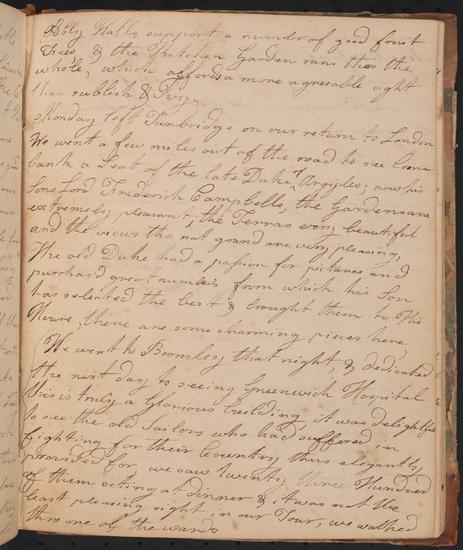 Abby Walls support a number of good fruit
Trees & the Kitchen Garden runs thro the
whole, which affords a more agreeable sight
than rubbish & Ivy.
Monday left Tunbridge on our return to London
We went a few miles out of the road to see Come
bank a Seat of the late Duke of Argiles; now his
Sons Lord Frederick Campbells, the Gardens are
extremely pleasant, the Terras very beautiful
and the views tho not grand are very pleasing,
the old Duke had a passion for pictures and
purchased great numbers from which his Son
has selected the best & brought them to this
House, there are some charming pieces here,
We went to Bromley that night, & dedicated
the next day to seeing Greenwich Hospital
this is truly a Glorious building, it was delightful
to see the old Sailors who had suffered in
fighting for their Country thus elegantly,
provided for, we saw twenty, three Hundred
of them seting at dinner & it was not the
least pleasing sight in our Tour, we walked
thro one of the wards